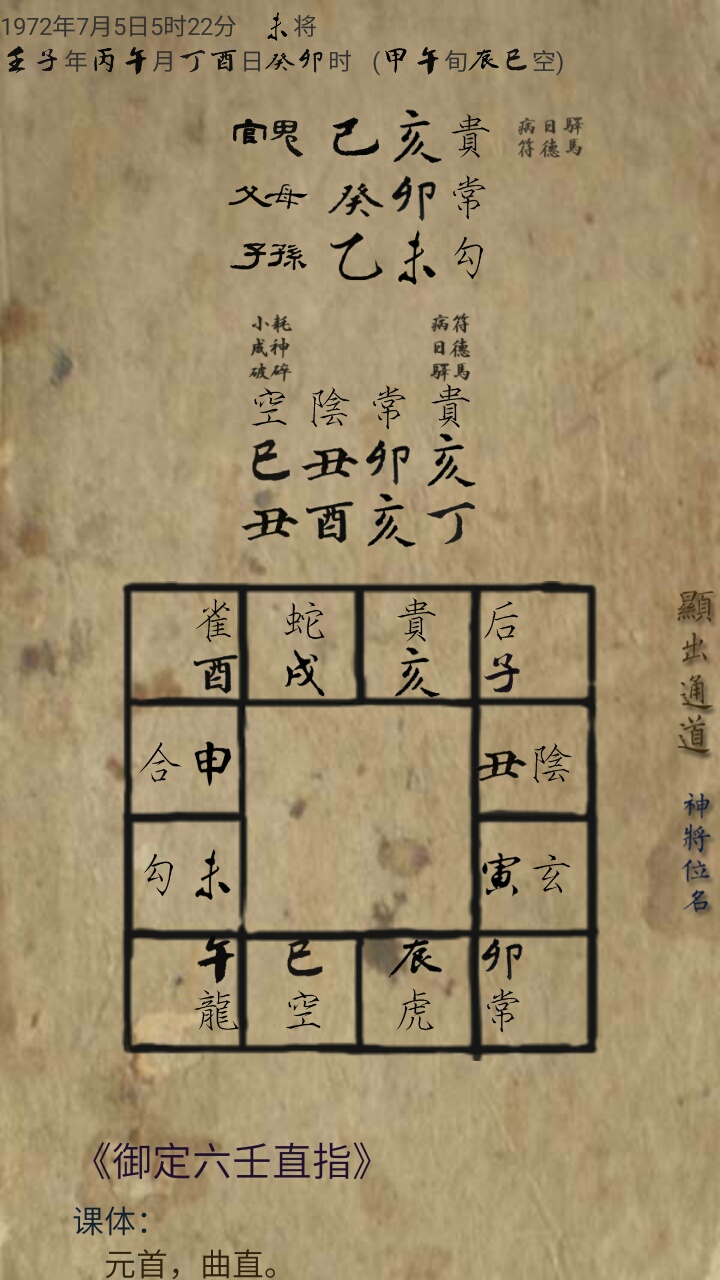 1972年7月5日5时22分 未将
壬子年丙午月丁酉日癸卯时 (甲午旬辰巳空)
官鬼 己亥貴 病日驛
符德馬
父母 癸卯常
子孫 乙未勾
小耗 病符
成神 日德
破碎 驛馬
空陰常貴
巳丑卯亥
丑酉亥丁
雀 蛇 貴 后
酉 戌 亥 子
合申 丑陰
勾未 寅玄
午 巳 辰 卯
龍 空 虎 常
顯出通道
神將位名
《御定六壬直指》
课体：
元首，曲直。